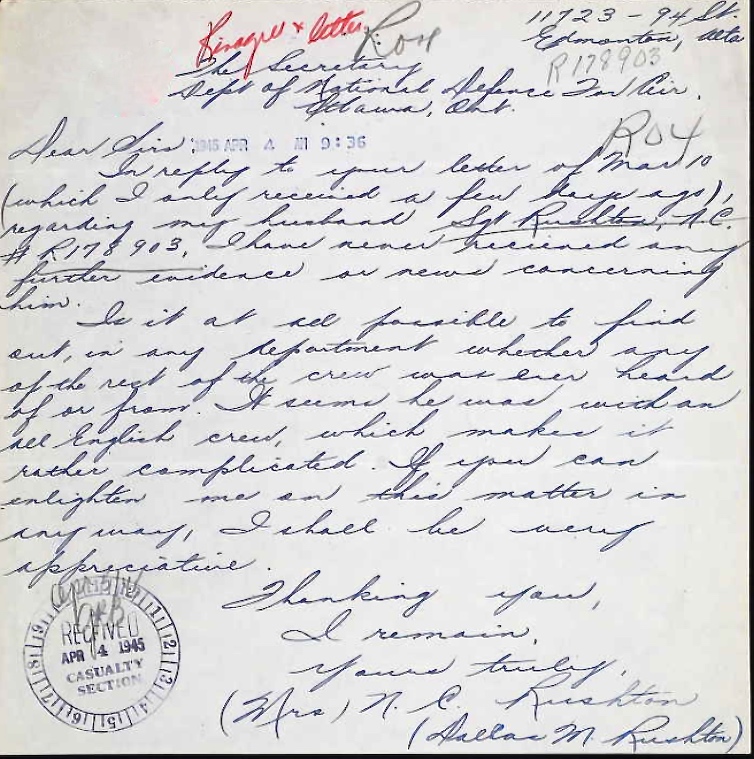 11723 - 94 St.
Edmonton, Alta
R178903
& letter
The Secretary
Dept of National Defence For Air.
Ottawa, Ont.
Dear Sirs:
1945 APR 4 AM 9:36
In reply to your letter of Mar 10
(which I only received a few days ago),
regarding my husband Sgt Rushton, N.C.
# R.178903, I have never recieved any
further evidence or news concerning
him.
Is it at all possible to find
out, in any department whether any
of the rest of the crew was ever heard
of or from. It seems he was with an
all English crew, which makes it
rather complicated. If you can
enlighten me on this matter in
anyway, I shall be very
appreciative.
Thanking you,
I remain,
Yours truly,
(Mrs) N. C. Rushton
(Dallas M. Rushton)
RECEIVED
APR 4 1945
CASUALTY
SECTION